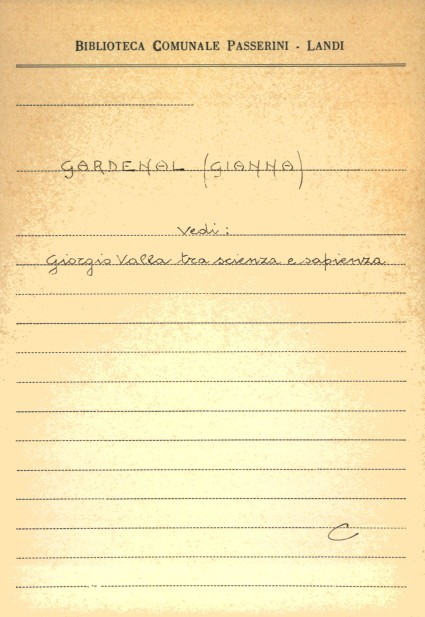 BIBLIOTECA COMUNALE PASSERINI - LANDI
GARDENAL (GIANNA)
Vedi:
Giorgio Valla tra scienza e sapienza.
C